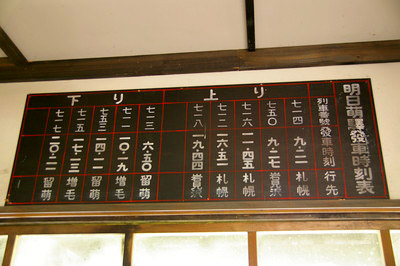 明日萌驛發車時刻表
列車番號 發車時刻 行先
上り
七一四 九・二一 札幌
七五〇 九・二七
七一六 一一・四五 札幌
七二二 一六・五一 札幌
七一八 一九・四四
下り
七一三 六・五〇 留萌
七二一 一〇・一九 増毛
七五三 一四・一一 留萌
七一五 一七・一三 増毛
七一七 二〇・二一 留萌